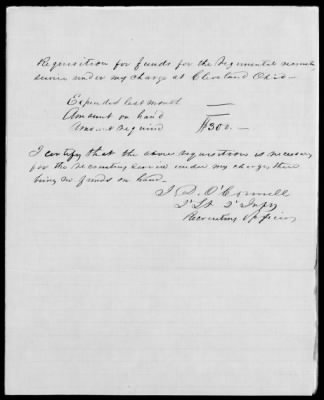 Requisition for funds for the Regimental recruiting
service under my charge at Cleveland Ohio—
Expended last month —
Amount on hand —
Amount required $300.—
I certify that the above requisition is necessary
for the recruiting service under my charge, there
being no funds on hand—
J. D. O'Connell
2' Lt 2' Infy
Recruiting Officer